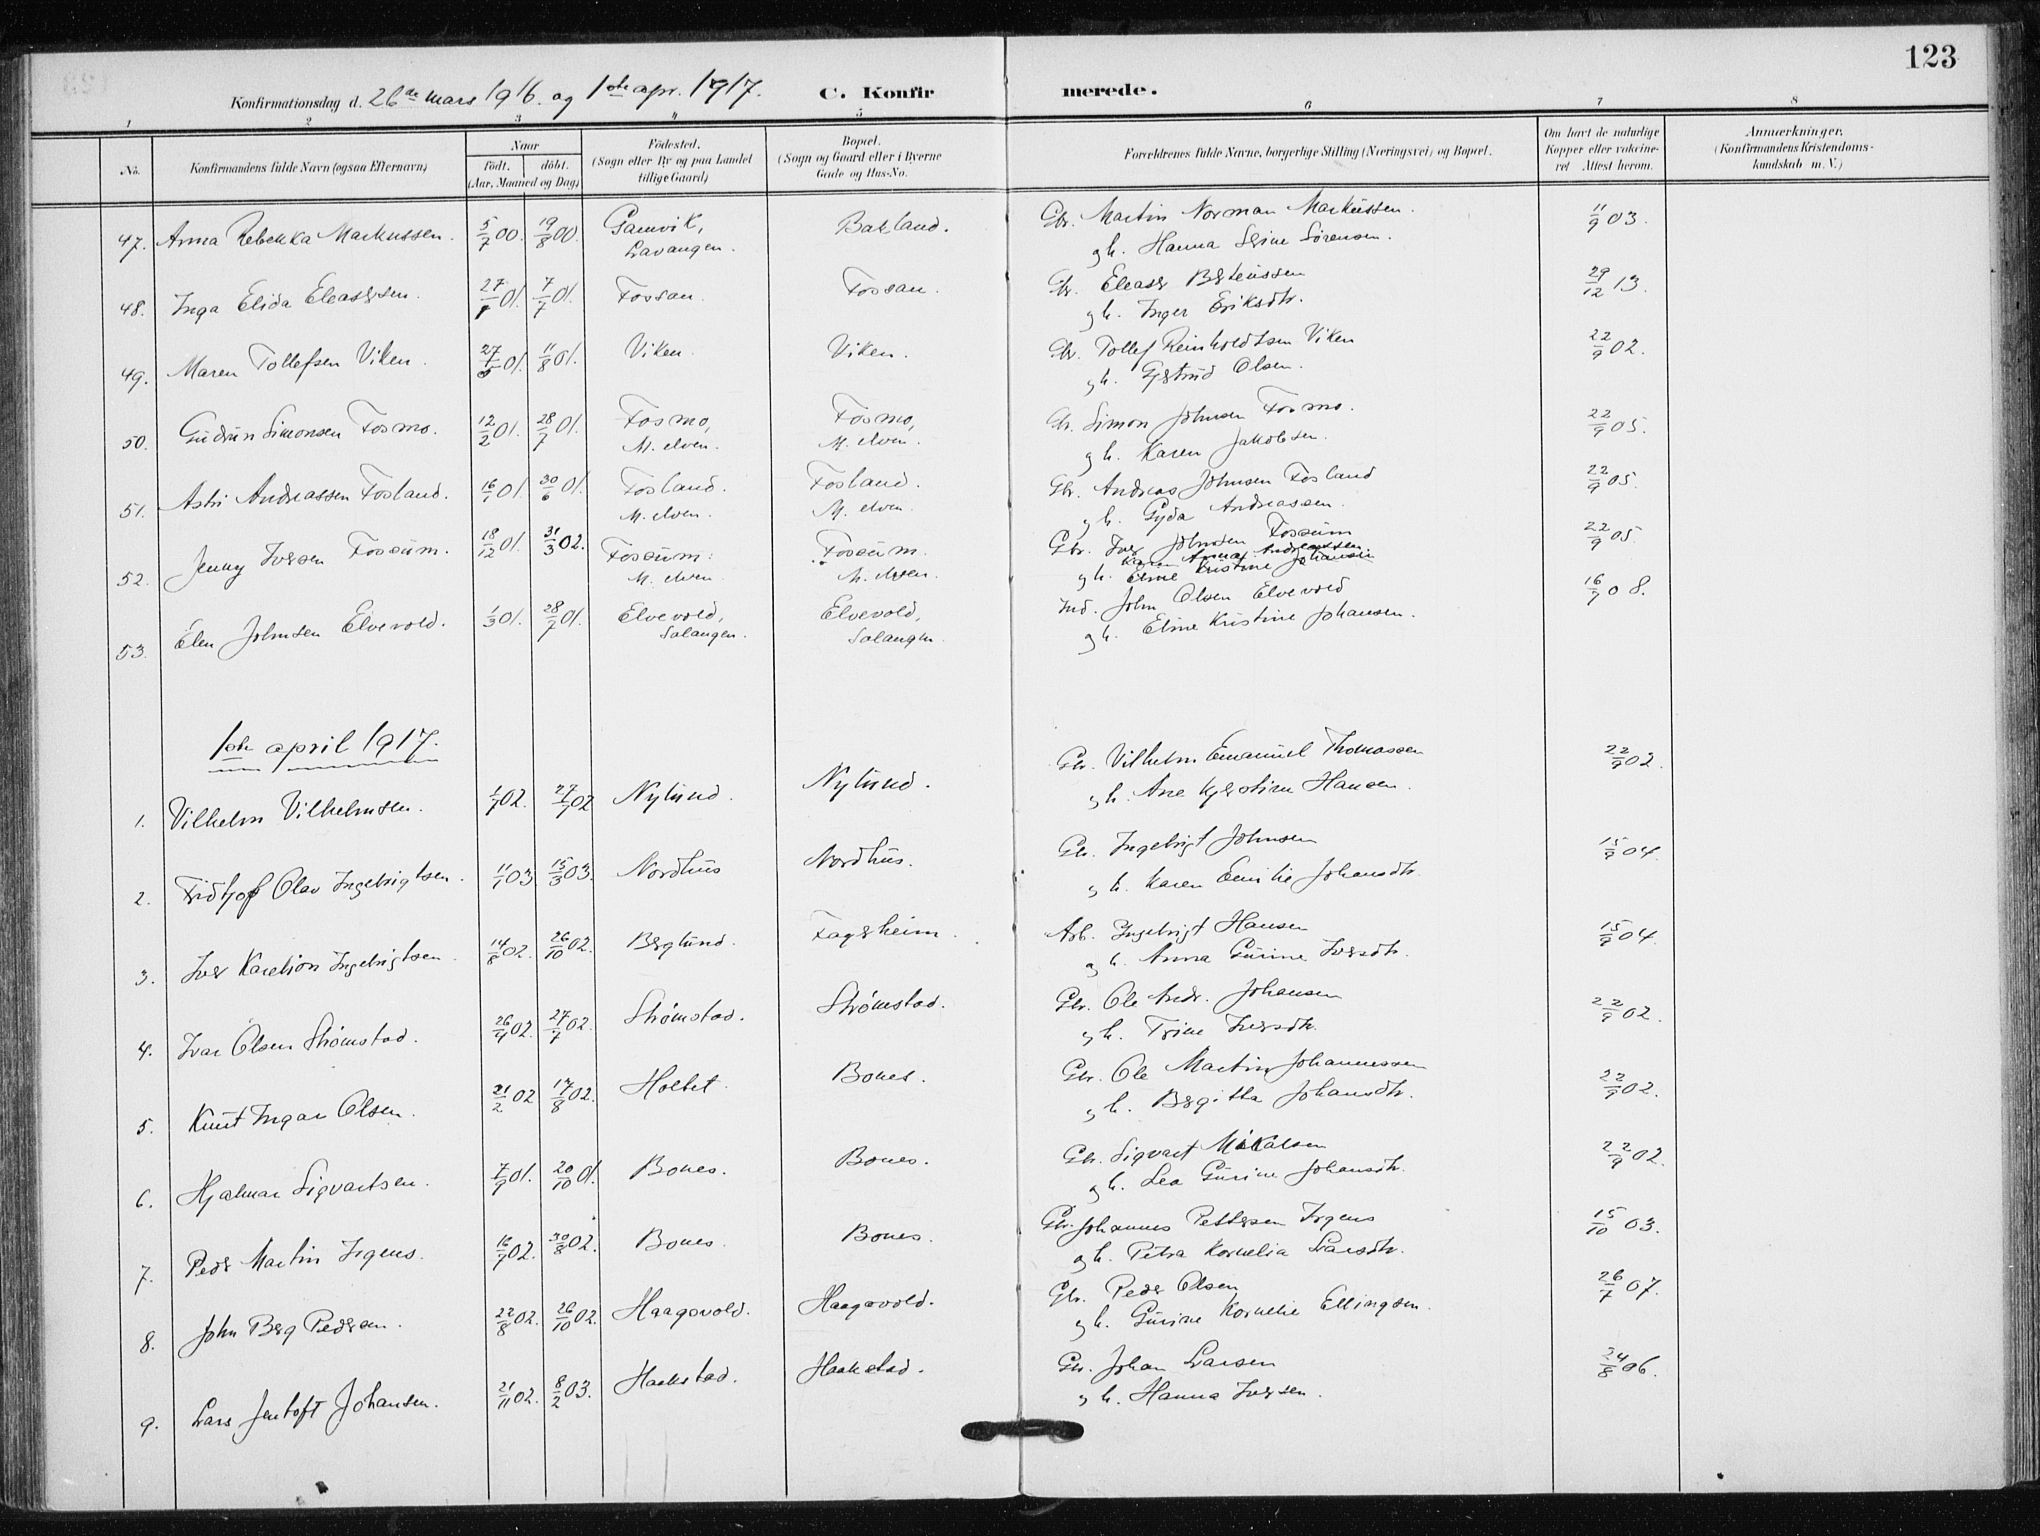 123
Konfirmationsdag d. 26de mars 1916. og 1ste apr. 1917. C. Konfirmerede.
1 2 3 4 5 6 7 8
No. Konfirmandens fulde Navn (ogsaa Efternavn) Naar født. døbt. (Aar, Maaned og Dag) Fødested. (Sogn eller By og paa Landet tillige Gaard) Bopæl. (Sogn og Gaard eller i Byerne Gade og Hus-No. Forældrenes fulde Navne, borgerlige Stilling (Næringsvei) og Bopæl. Om havt de naturlige Kopper eller vaccineret Attest herom. Anmærkninger, (Konfirmandens Kristendomskundskab m. V.)
47. Anna Rebekka Markussen. 5/7 00. 19/8 00. Gamvik, Lavangen. Bakland. Gbr. Martin Norman Markussen. 11/9 03.
gh. Hanna Serine Sørensen.
48. Inga Elida Eleasersen. 27/ 01. 7/7 01. Fossan. Fossan. Gbr. Eleaser Berteussen 29/12 13.
gh. Inger Eriksdtr.
49. Maren Tollefsen Viken. 27/ 01. 11/8 01. Viken. Viken. Gbr. Tollef Reinholdtsen Viken 22/9 02.
gh. Gjertrud Olsen.
50. Gudrun Simonsen Fosmo. 12/2 01. 28/7 01. Fosmo, M. elven. Fosmo, M. elven. Gbr. Simon Johnsen Fosmo. 22/9 05.
gh. Karen Jakobsen.
51. Astri Andreassen Fosland. 16/1 01. 30/6 01. Fosland. M. elven. Fosland. M. elven. Gbr. Andreas Johnsen Fosland 22/9 05.
gh. Gyda Andreassen.
52. Jenny Iversen Fossum. 18/12 01. 31/3 02. Fossum. M. elven. Fossum. M. elven. Gbr. Iver Johnsen Fossum 22/9 05.
Karen Anna Andreassen
gh. Eline Kristine Johansen
53. Elen Johnsen Elvevold. 1/3 01. 28/7 01. Elvevold, Salangen. Elvevold, Salangen. Ind. John Olsen Elvevold 16/7 08.
gh. Eline Kristine Johansen.
1ste april 1917.
1. Vilhelm Vilhelmsen. 1/7 02. 27/7 02 Nylund. Nylund. Gbr. Vilhelm Emanuel Thomassen 22/9 02.
gh. Ane Kjerstine Hansen.
2. Fridtjof Olav Ingebrigtsen. 11/1 03 15/3 03. Nordhus Nordhus. Gbr. Ingebrigt Johnsen 15/9 04.
gh. Karen Emilie Johansdtr.
3. Iver Karelius Ingebrigtsen. 14/8 02. 26/10 02. Berglund. Fagerheim. Arb. Ingebrigt Hansen 15/9 04.
gh. Anna Gurine Iversdtr.
4. Ivar Olsen Strømstad. 26/4 02. 27/7 02. Strømstad. Strømstad. Gbr. Ole Andr. Johansen 22/9 02.
gh. Trine Iversdtr.
5. Knut Ingar Olsen. 21/2 02 17/8 02. Holtet. Bones. Gbr. Ole Martin Johannessen 22/9 02.
gh. Bergitta Johansdtr.
6. Hjalmar Sigvartsen. 7/9 01. 20/10 01. Bones. Bones. Gbr. Sigvart Mikalsen 22/9 02.
gh. Lea Gurine Johansdtr.
7. Peder Martin Irgens. 16/7 02. 30/8 02. Bones. Bones. Gbr. Johannes Pettersen Irgens 15/10 03.
gh. Petra Kornelia Larsdtr.
8. John Berg Pedersen. 22/8 02. 26/10 02. Haagavold. Haagavold. Gbr. Peder Olsen 26/7 07.
gh. Gurine Kornelie Ellingsen.
9. Lars Jentoft Johansen. 21/11 02. 8/2 03. Haakstad. Haakstad. Gbr. Johan Larsen 24/8 06.
gh. Hanna Iversen.